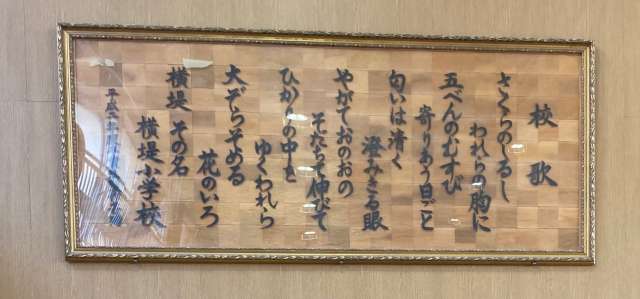 校歌
さくらのしるし
われらの胸に
五べんのむすび
寄りあう日ごと
匂いは清く
澄みきる眼
やがておのおの
そだちて伸びて
ひかりの中を
ゆくわれら
大ぞらそめる
花のいろ
横堤 その名
横堤小学校
平成